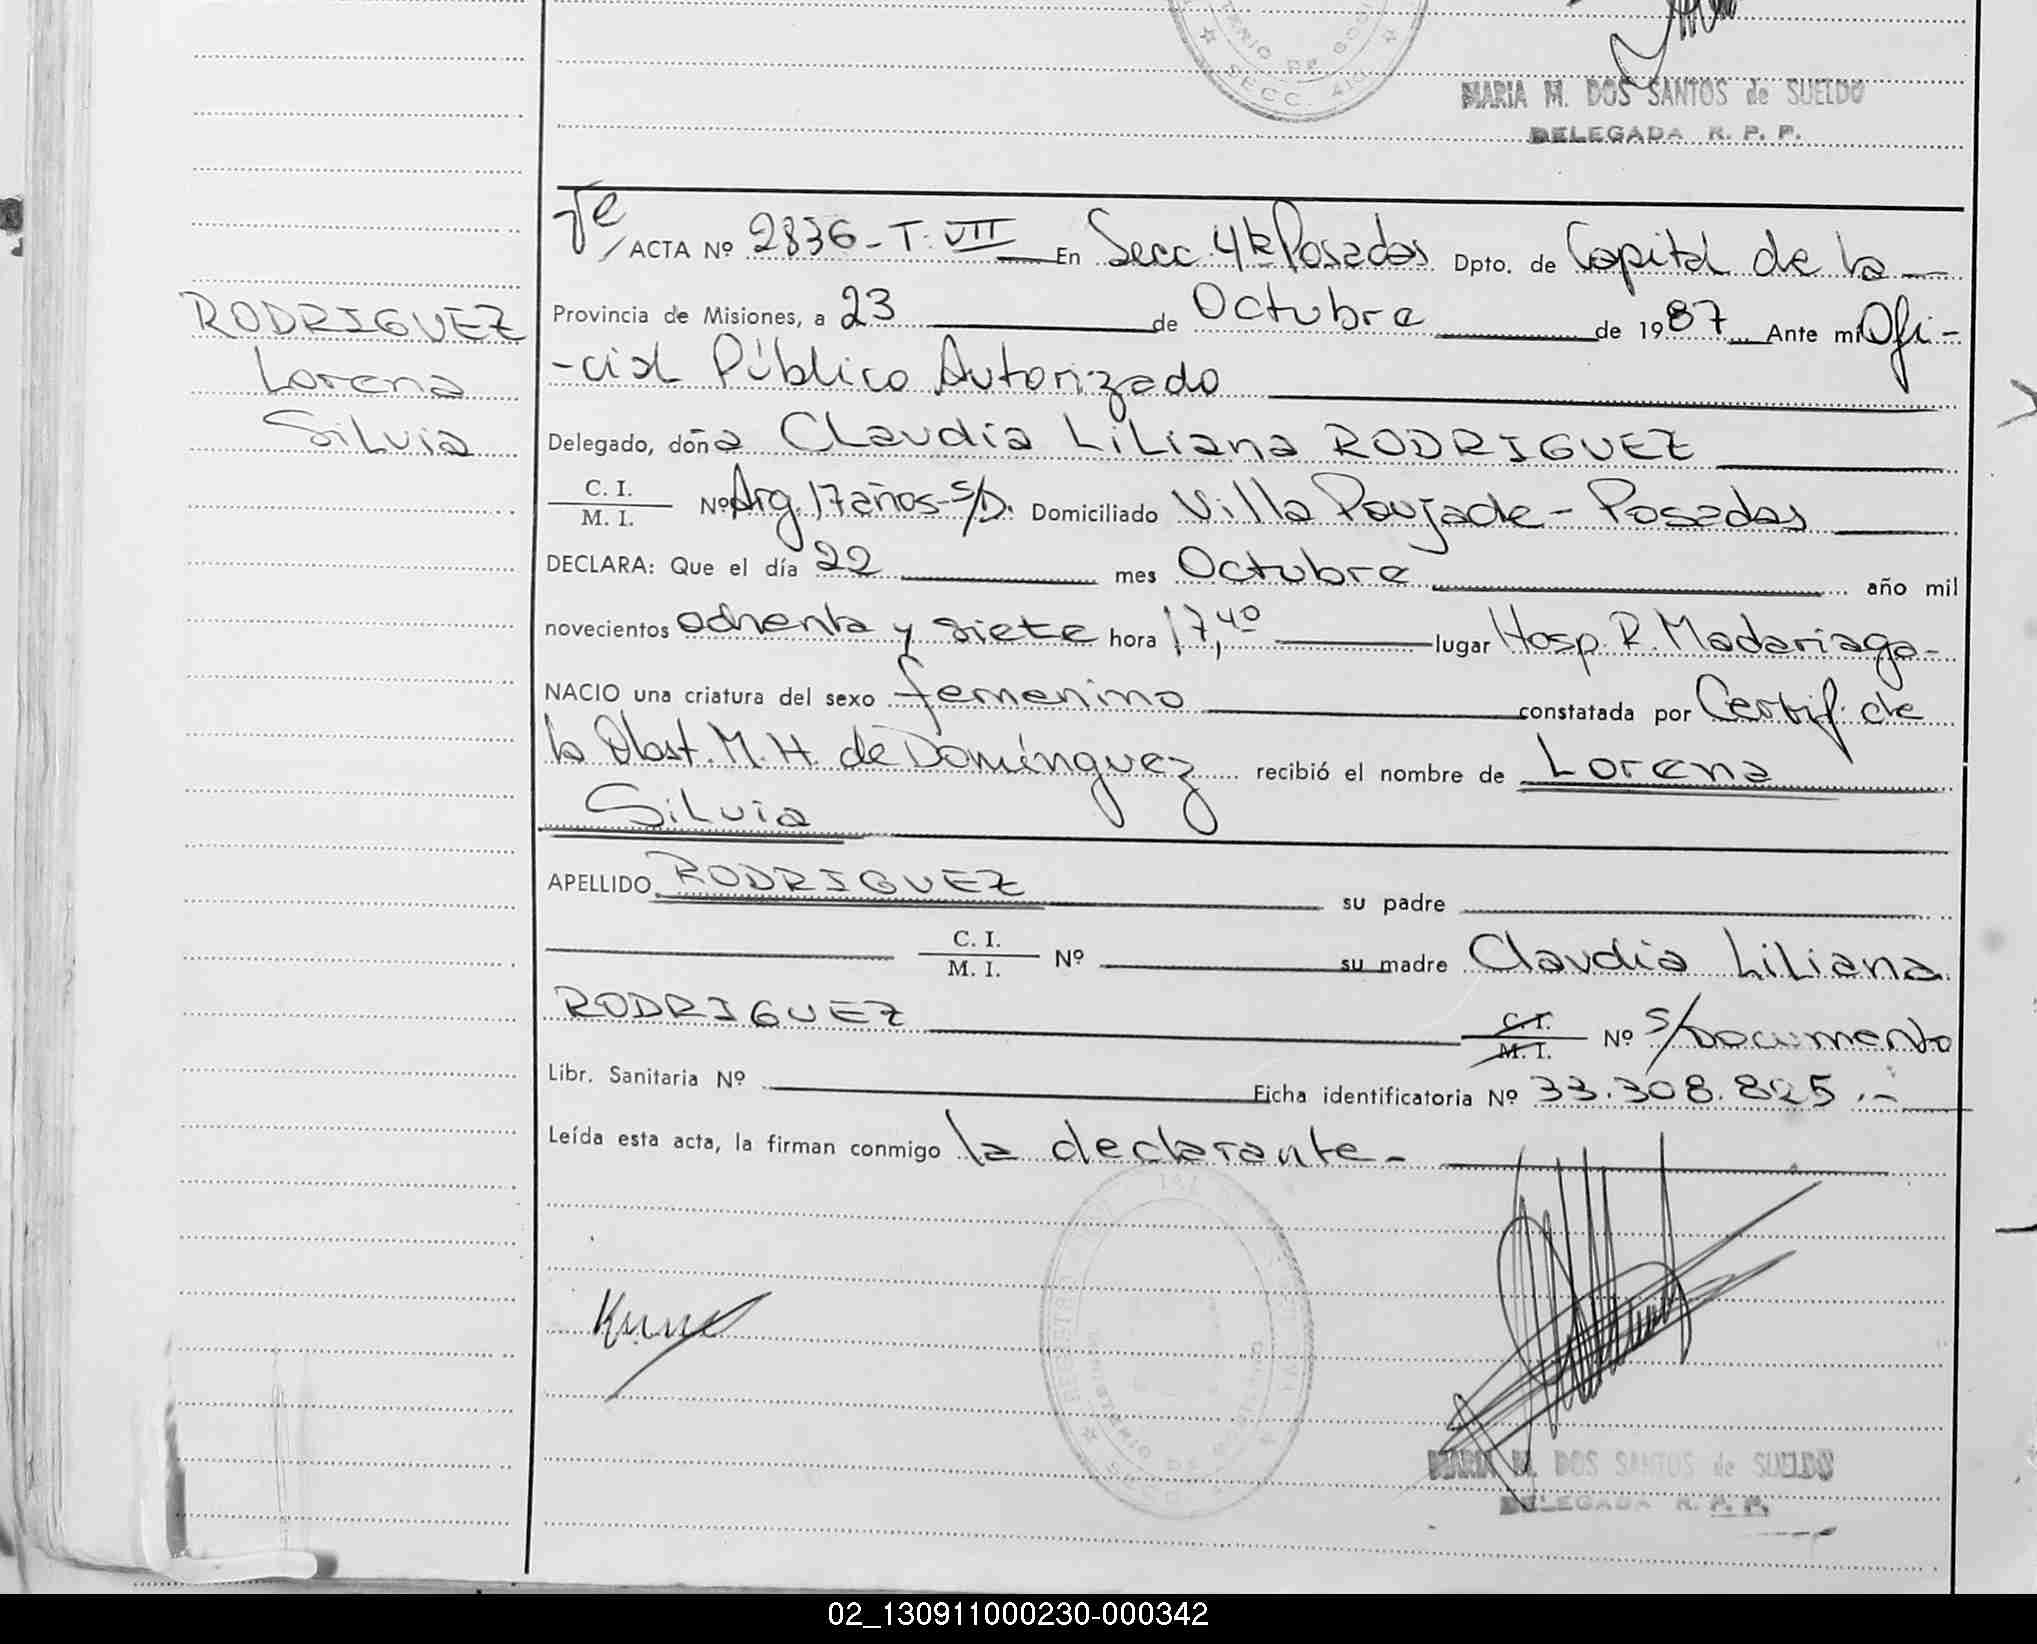 MARIA M. DOS SANTOS de SUELDO
DELEGADA R. P. P.
SECC. 4
ACTA Nº 2836 - T. VII En Secc. 4ta Posadas Dpto. de Capital de la
Provincia de Misiones, a 23 de Octubre de 1987 Ante mi Ofi-
-cial Público Autorizado
Delegado, doña Claudia Liliana RODRIGUEZ
C. I.
M. I. Nº Arg. 17 años - S/D. Domiciliado Villa Poujade - Posadas
DECLARA: Que el día 22 mes Octubre año mil
novecientos ochenta y siete hora 17,40 lugar Hosp. R. Madariaga-
NACIO una criatura del sexo femenino constatada por Certif. de
la Obst. M. H. de Domínguez recibió el nombre de Lorena
Silvia
APELLIDO RODRIGUEZ su padre
C. I.
M. I. Nº su madre Claudia Liliana
RODRIGUEZ C. I. M. I. Nº S/Documento
Libr. Sanitaria Nº Ficha identificatoria Nº 33.308.825.-
Leída esta acta, la firman conmigo la declarante-
RODRIGUEZ
Lorena
Silvia
MARIA M. DOS SANTOS de SUELDO
DELEGADA R. P. P.
02_130911000230-000342